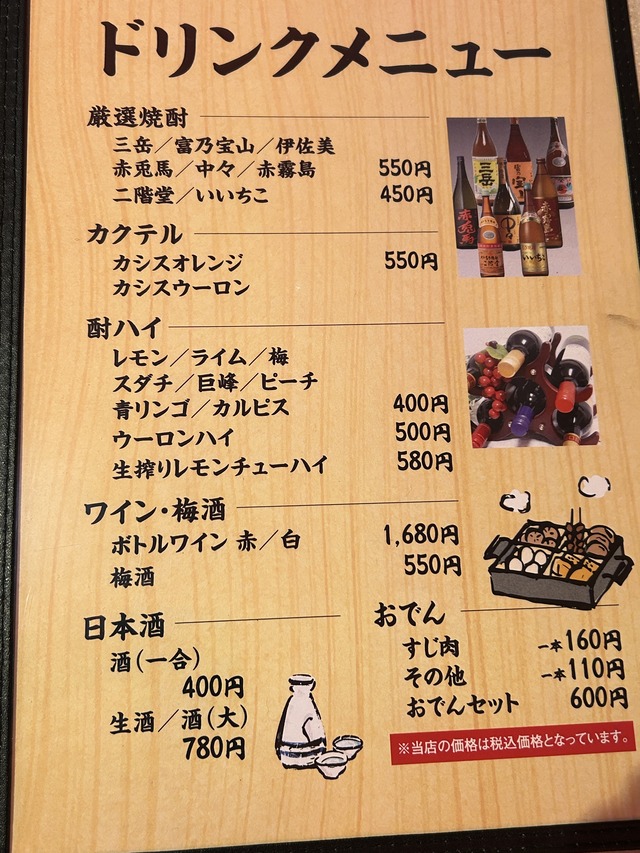 ドリンクメニュー
厳選焼酎
三岳／富乃宝山／伊佐美
赤兎馬／中々／赤霧島 550円
二階堂／いいちこ 450円
カクテル
カシスオレンジ 550円
カシスウーロン
酎ハイ
レモン／ライム／梅
スダチ／巨峰／ピーチ
青リンゴ／カルピス 400円
ウーロンハイ 500円
生搾りレモンチューハイ 580円
ワイン・梅酒
ボトルワイン 赤／白 1,680円
梅酒 550円
日本酒
酒(一合)
400円
生酒／酒(大)
780円
おでん
すじ肉 一本160円
その他 一本110円
おでんセット 600円
※当店の価格は税込価格となっています。
三岳
赤兎馬
いいちこ